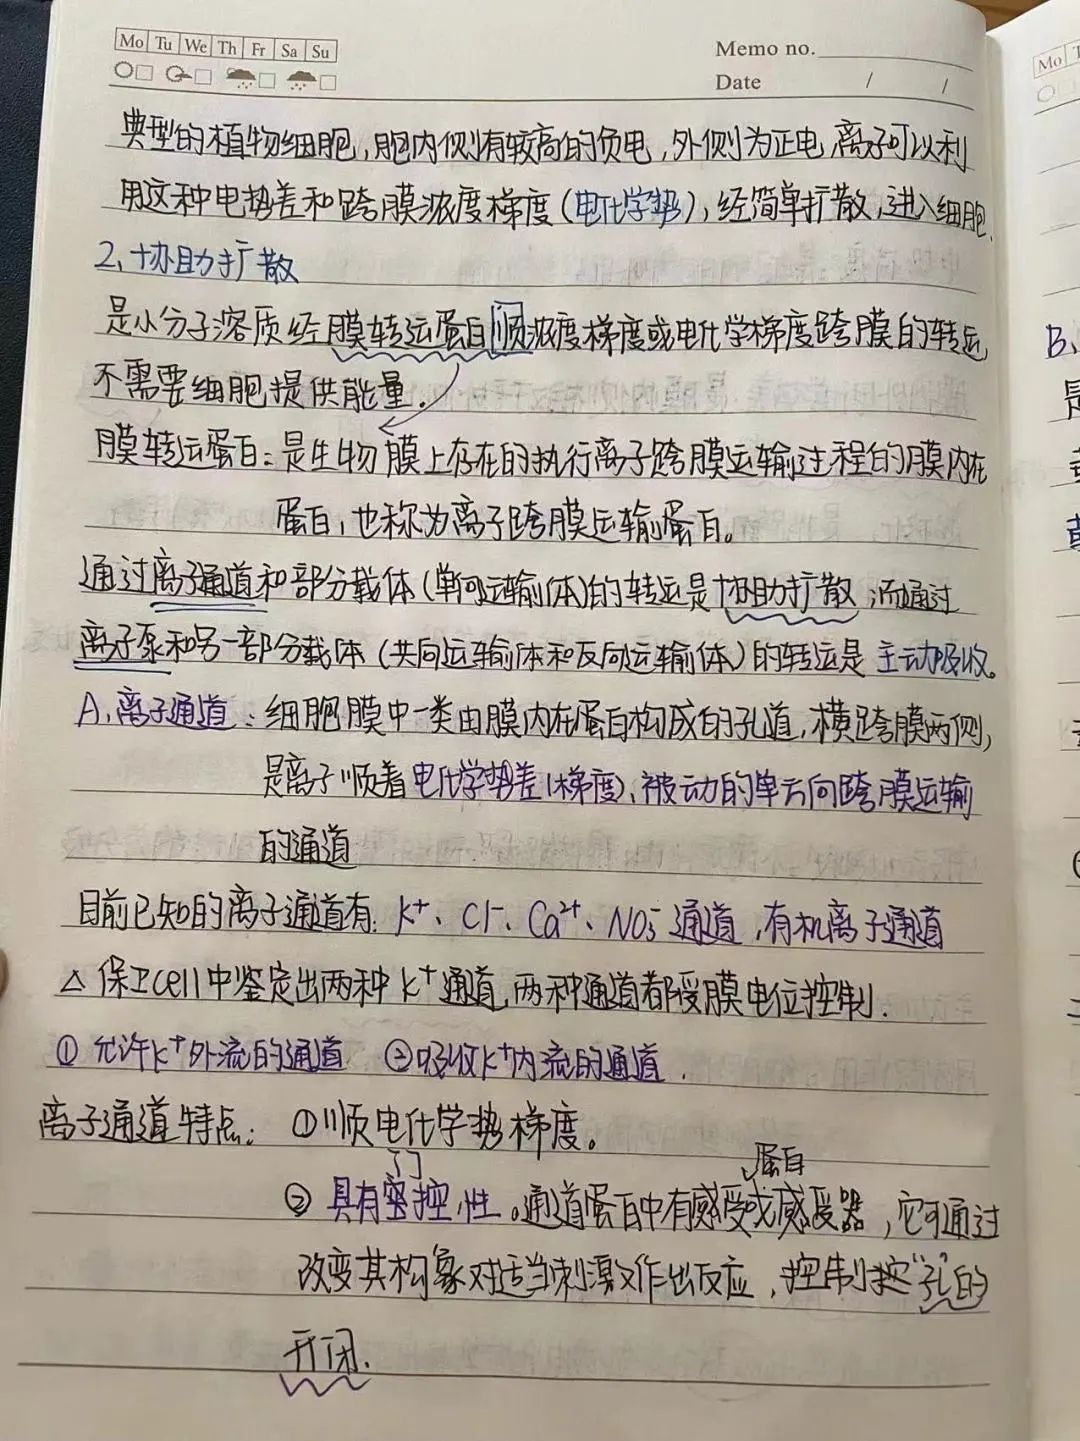 Mo Tu We Th Fr Sa Su
Memo no.
Date / /
典型的植物细胞,胞内侧有较高的负电,外侧为正电,离子可以利
用这种电势差和跨膜浓度梯度(电化学势),经简单扩散,进入细胞.
2、协助扩散
是小分子溶质经膜转运蛋白顺浓度梯度或电化学梯度跨膜的转运,
不需要细胞提供能量.
膜转运蛋白:是生物膜上存在的执行离子跨膜运输过程的膜内在
蛋白,也称为离子跨膜运输蛋白。
通过离子通道和部分载体(单向运输体)的转运是协助扩散,而通过
离子泵和另一部分载体(共向运输体和反向运输体)的转运是主动吸收。
A、离子通道:细胞膜中一类由膜内在蛋白构成的孔道,横跨膜两侧,
是离子顺着电化学势差(梯度)、被动的单方向跨膜运输
的通道
目前已知的离子通道有:K⁺、Cl⁻、Ca²⁺、NO₃⁻通道,有机离子通道
△ 保卫cell中鉴定出两种K⁺通道,两种通道都受膜电位控制.
① 允许K⁺外流的通道 ②吸收K⁺内流的通道.
离子通道特点: ①顺电化学势梯度。
门 蛋白
② 具有密控性。通道蛋白中有感受或感受器,它可通过
改变其构象对适当刺激作出反应,控制控“孔”的
开闭.
Mo
B、
是